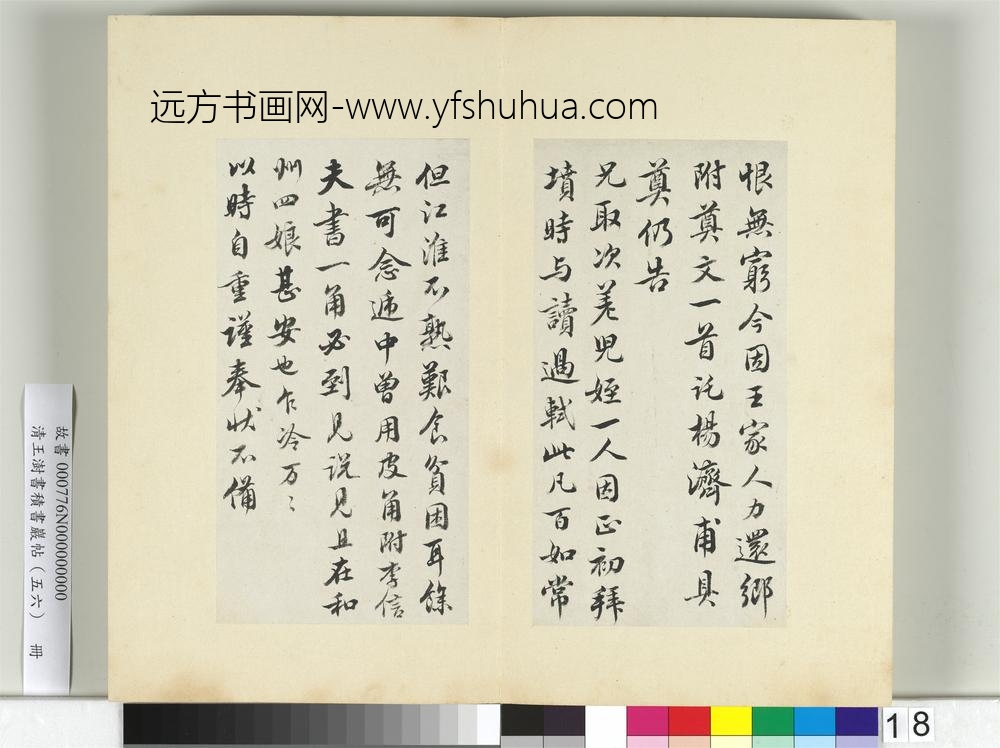 远方书画网-www.yfshuhua.com
恨無窮今因王家人力還鄉
附奠文一首託楊濟甫具
奠仍告
兄取次差兒姪一人因正初拜
墳時与讀過軾此凡百如常
但江淮不熟艱食貧困耳餘
無可念遞中曾用皮角附李信
夫書一角必到見說見且在和
州四娘甚安也乍冷万〻
以時自重謹奉狀不備
故書 000776N000000000
清王澍書積書巖帖(五六) 冊
18